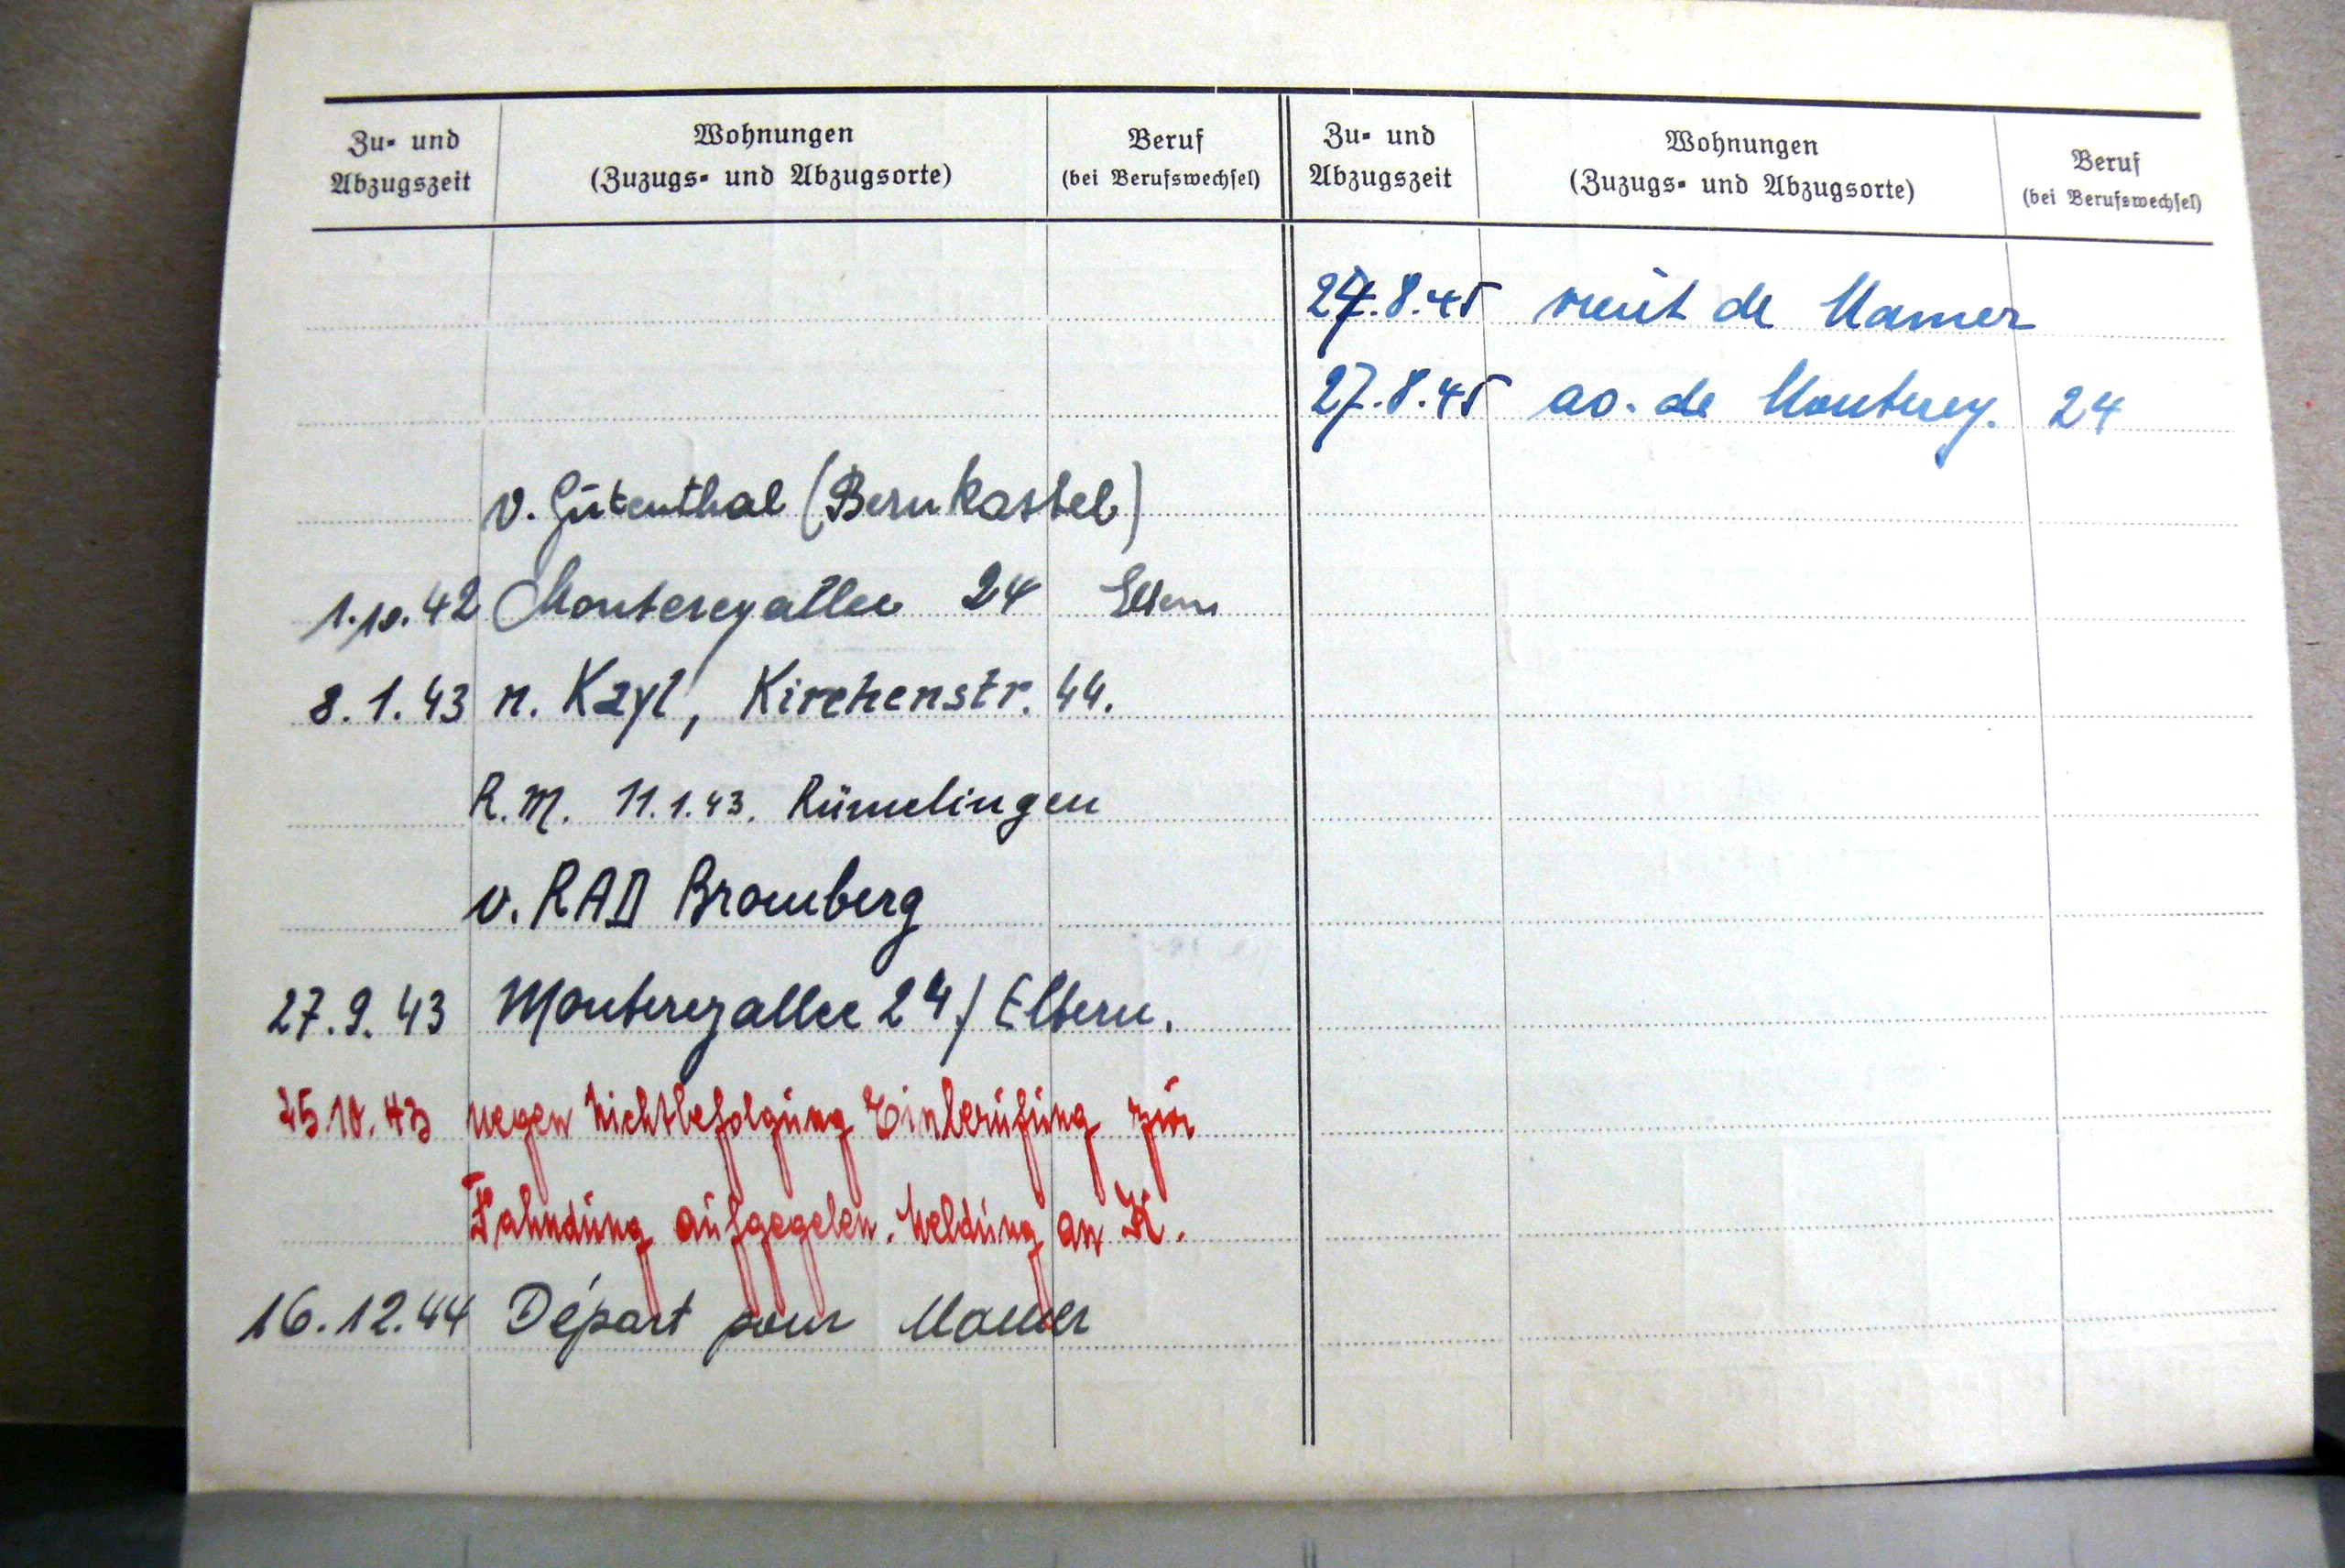 Zu- und Abzugszeit
Wohnungen (Zuzugs- und Abzugsorte)
Beruf (bei Berufswechsel)
v. Gutenthal (Bernkastel)
1.10.42 Montereyallee 24 Eltern
8.1.43 n. Kayl, Kirchenstr. 44.
R.M. 11.1.43. Rümelingen
v. RAD Bromberg
27.9.43 Montereyallee 24 / Eltern.
25.10.43 wegen Nichtbefolgung Einberufung zur
Fahndung aufgegeben. Meldung an K.
16.12.44 Départ pour Mamer
Zu- und Abzugszeit
Wohnungen (Zuzugs- und Abzugsorte)
Beruf (bei Berufswechsel)
27.8.45 vient de Mamer
27.8.45 av. de Monterey. 24